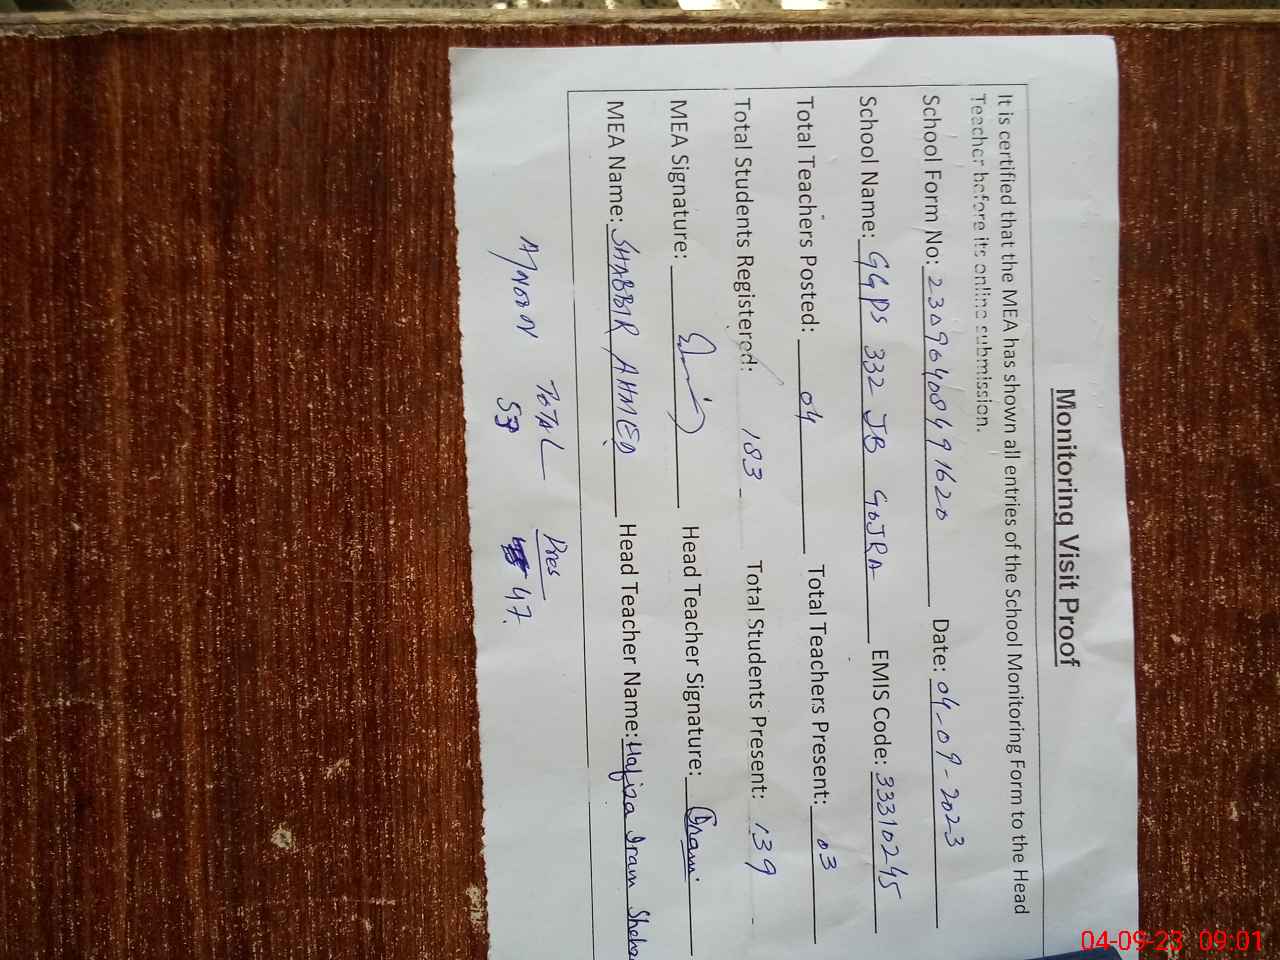 Monitoring Visit Proof
It is certified that the MEA has shown all entries of the School Monitoring Form to the Head
Teacher before its online submission.
School Form No: 23096408491620 Date: 04-09-2023
School Name: GGPS 332 JB GOJRA EMIS Code: 33310245
Total Teachers Posted: 04 Total Teachers Present: 03
Total Students Registered: 183 Total Students Present: 139
MEA Signature: Head Teacher Signature: Iram
MEA Name: SHABBIR AHMED Head Teacher Name: Hafiza Iram
TOTAL Pres
A/NOON 53 47.
04-09-23 09:01